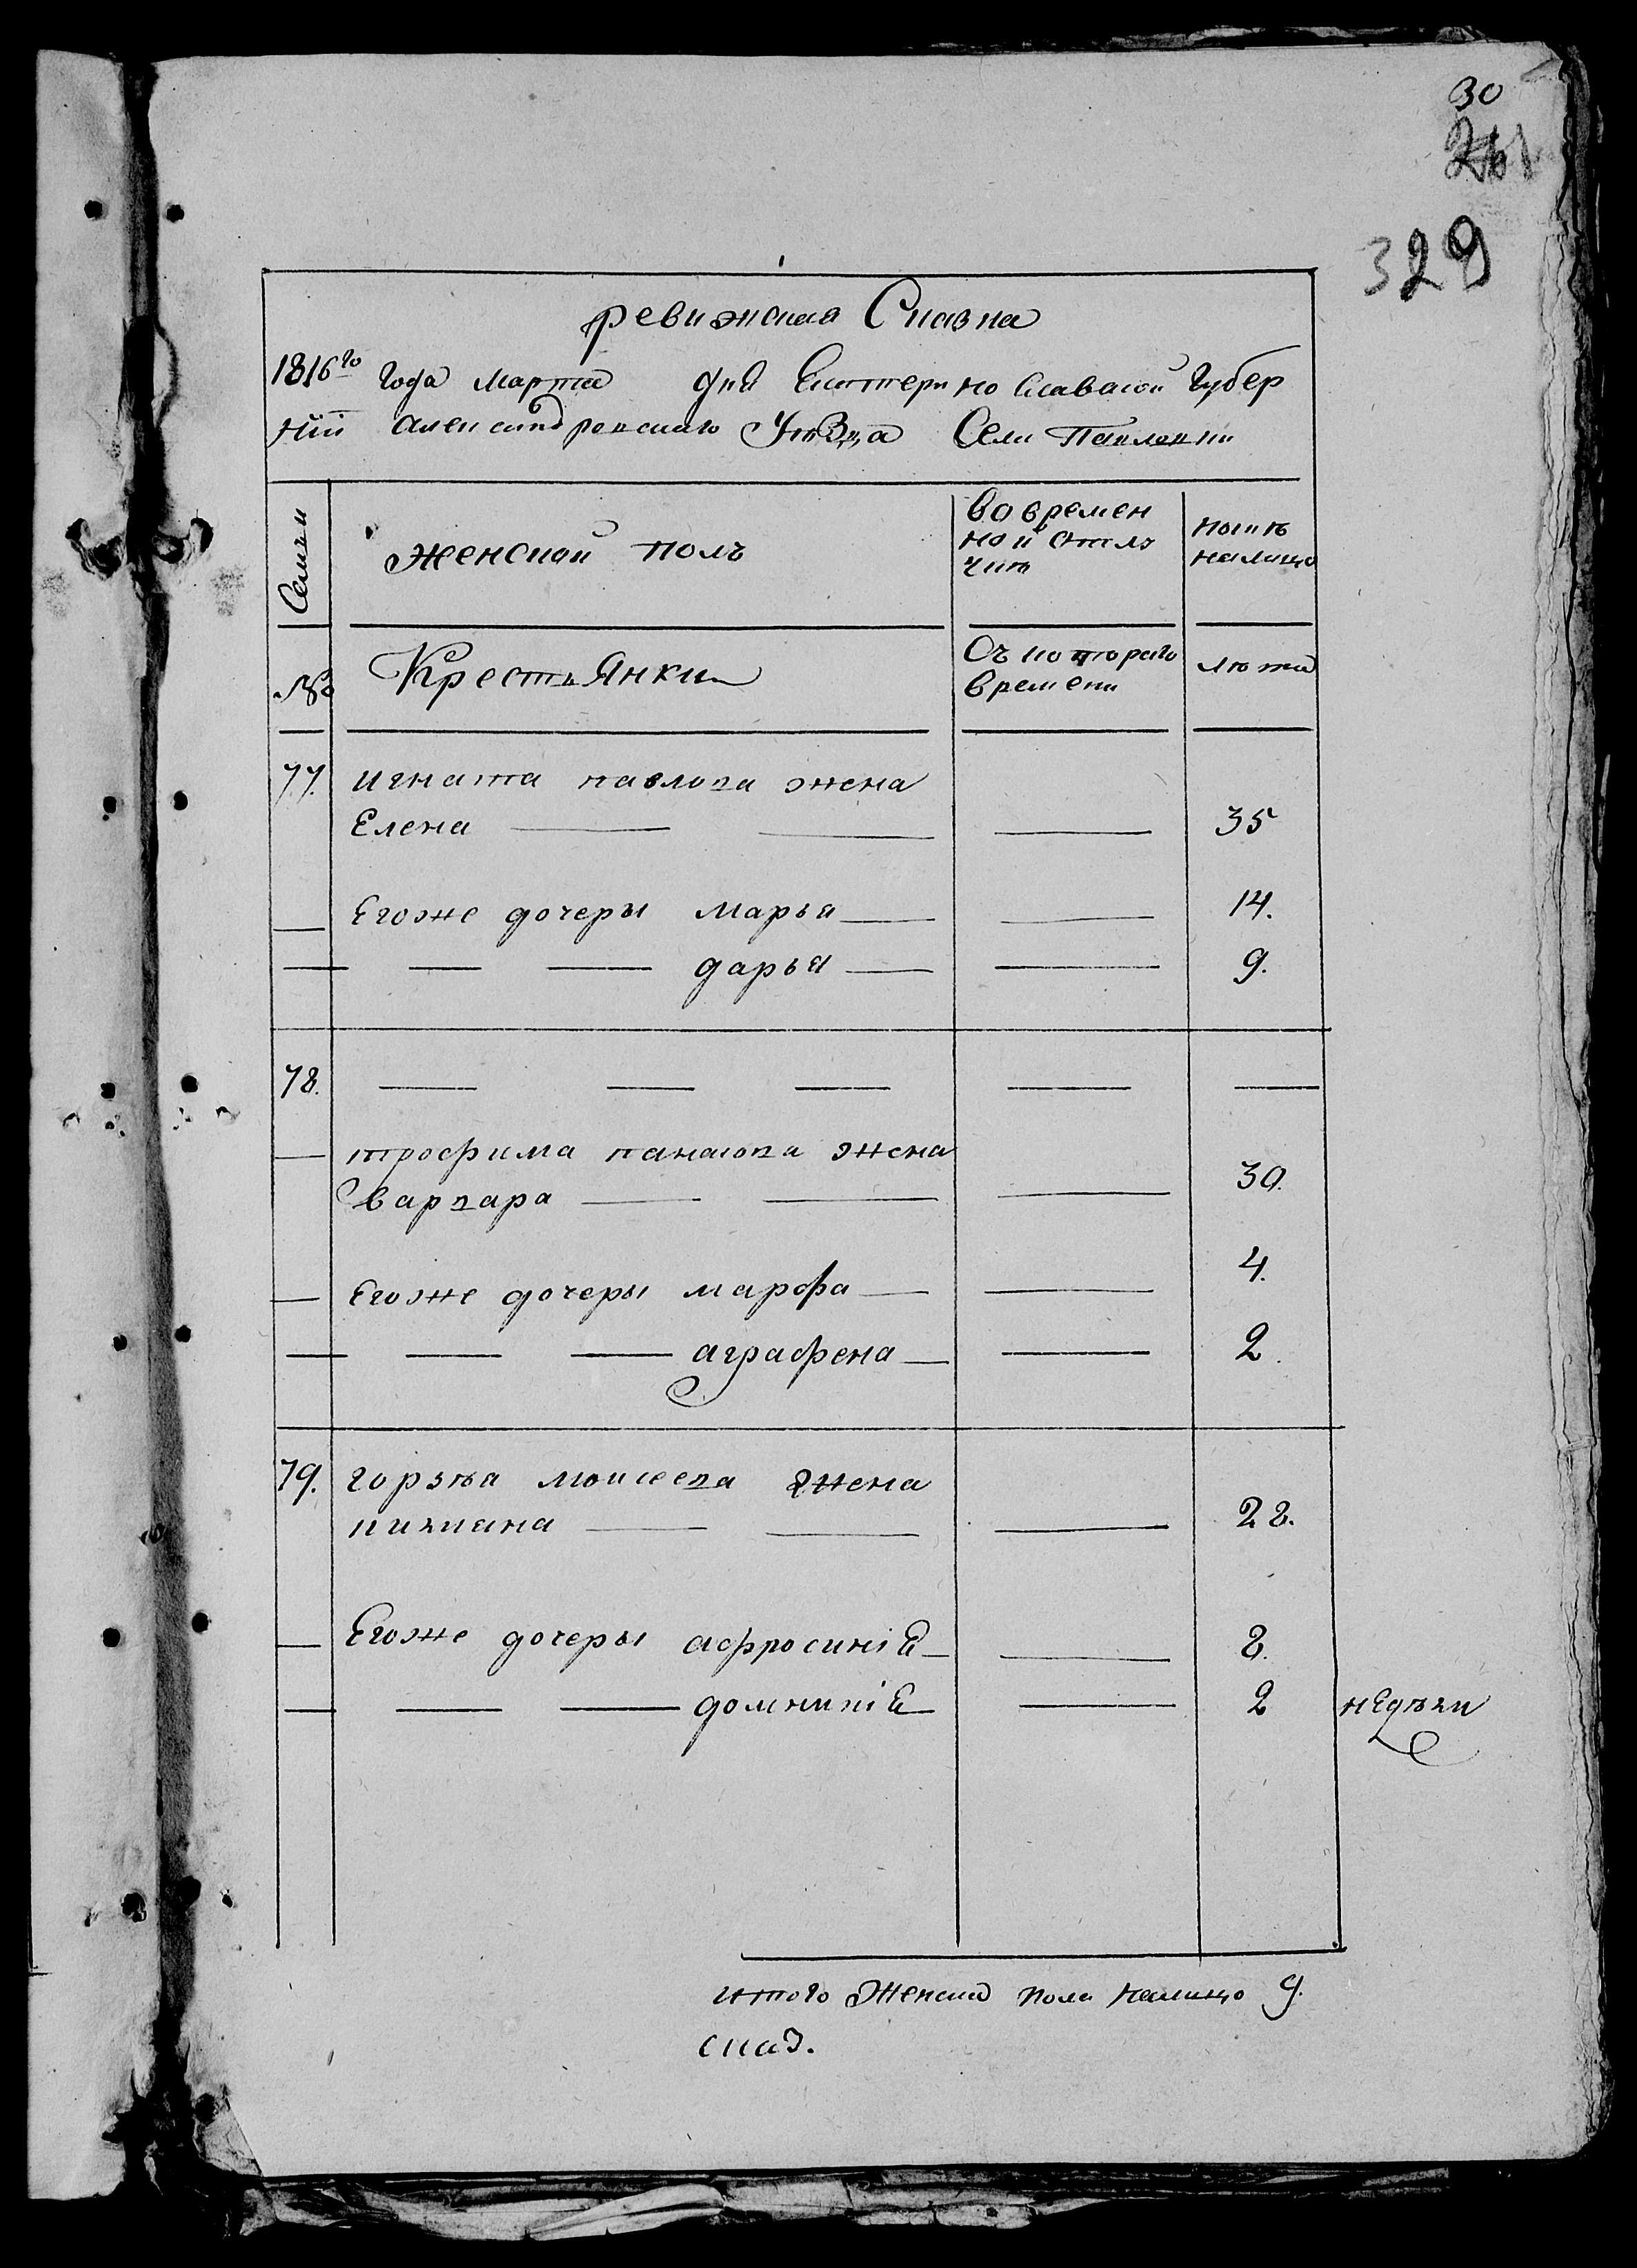 30
329
ревижская Сказка
1816го года марта дня Екатерино Славской Губер
нїи александровскаго Уѣзда Села Павловки
Семьи
женской полъ
во времен
ной отлу
чкѣ
нынѣ
налицо
№
Крестьянки
Съ котораго
времени
лѣта
77. игната павлова жена
Елена 35
Егоже дочеры марья 14.
дарья 9.
78.
трофима панасова жена
варвара 30.
Егоже дочеры марфа 4.
аграфена 2.
79. горѣѣа моисеева жена
28.
Егоже дочеры афросинія 8.
домникія 2 недѣли
итого женска пола налицо 9.